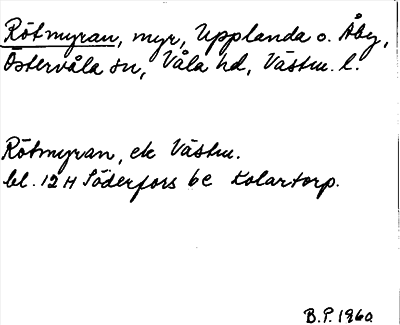 Rötmyran, myr, Upplanda o. Åby,
Östervåla sn, Våla hd, Västm. l.
Rötmyran, ek Västm.
bl. 12 H Söderfors 6e Kolartorp.
B.P. 1960